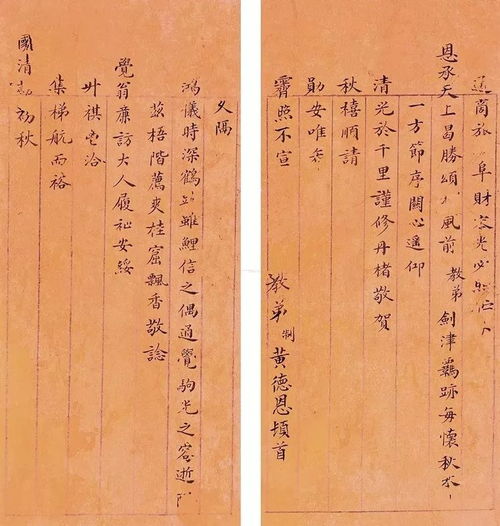 久隔
鴻儀時深鶴跂雖鯉信之偶通覺駒光之容逝
茲梧階薦爽桂窟飄香敬諗
覺翁廉訪大人履祉安綏
升祺雲洽
集梯航而裕
國清初秋
通商於阜財容光必照
恩承天上昌勝頌風前教弟劍津羈跡每懷秋水
一方節序關心遥仰
清光於千里謹修丹楮敬賀
秋禧順請
勛安唯希
霽照不宣
教弟制黃德恩頓首